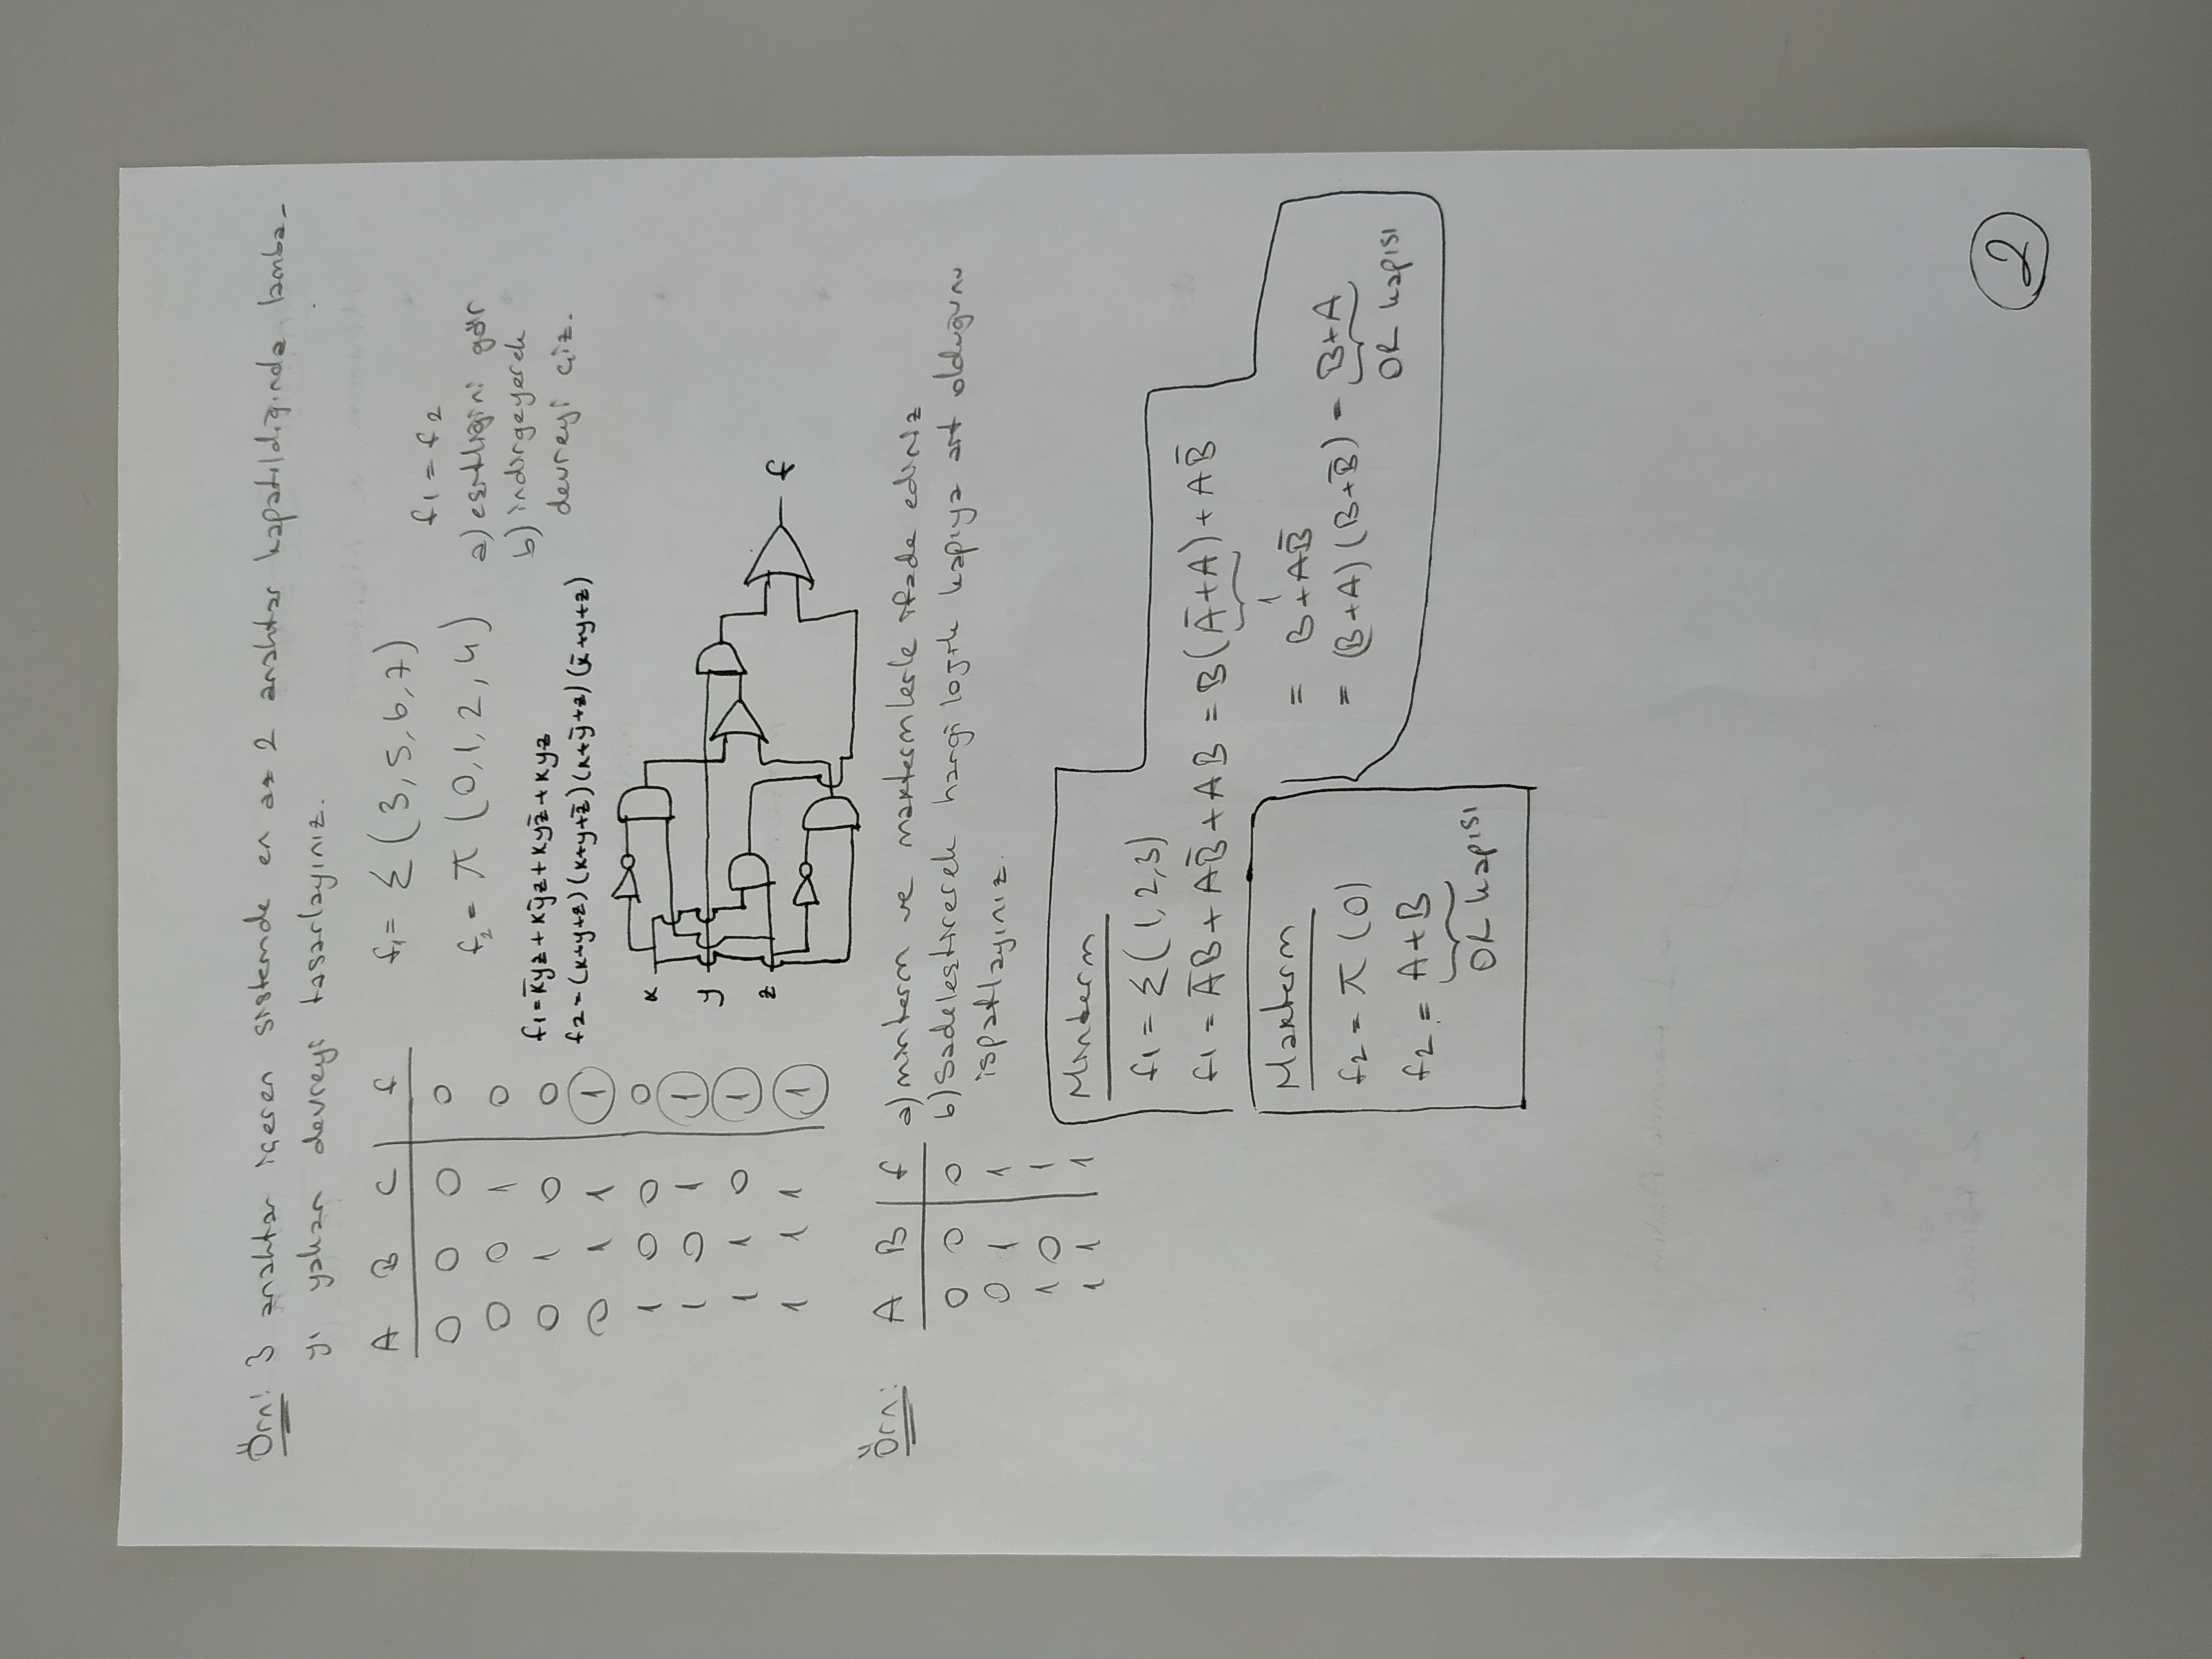 Örn: 3 anahtar içeren sistemde en az 2 anahtar kapatıldığında lamba-
yı yakan devreyi tasarlayınız.
A B C | f
0 0 0 | 0
0 0 1 | 0
0 1 0 | 0
0 1 1 | 1
1 0 0 | 0
1 0 1 | 1
1 1 0 | 1
1 1 1 | 1
f₁ = Σ (3,5,6,7)
f₂ = π (0,1,2,4)
f1 = f2
a) eşitliğini gör
b) indirgeyerek
devreyi çiz.
f1 = x̄yz + xȳz + xyz̄ + xyz
f2 = (x+y+z) (x+y+z̄) (x+ȳ+z) (x̄+y+z)
x
y
z
f
Örn:
A B | f
0 0 | 0
0 1 | 1
1 0 | 1
1 1 | 1
a) minterm ve maxtermlerle ifade ediniz
b) Sadeleştirerek hangi lojik kapıya ait olduğunu
ispatlayınız.
Minterm
f1 = Σ (1,2,3)
f1 = ĀB + AB̄ + AB = B(Ā+A) + AB̄
1
= B + AB̄
= (B+A) (B+B̄) = B+A
OR kapısı
Maxterm
f2 = π (0)
f2 = A+B
OR kapısı
2